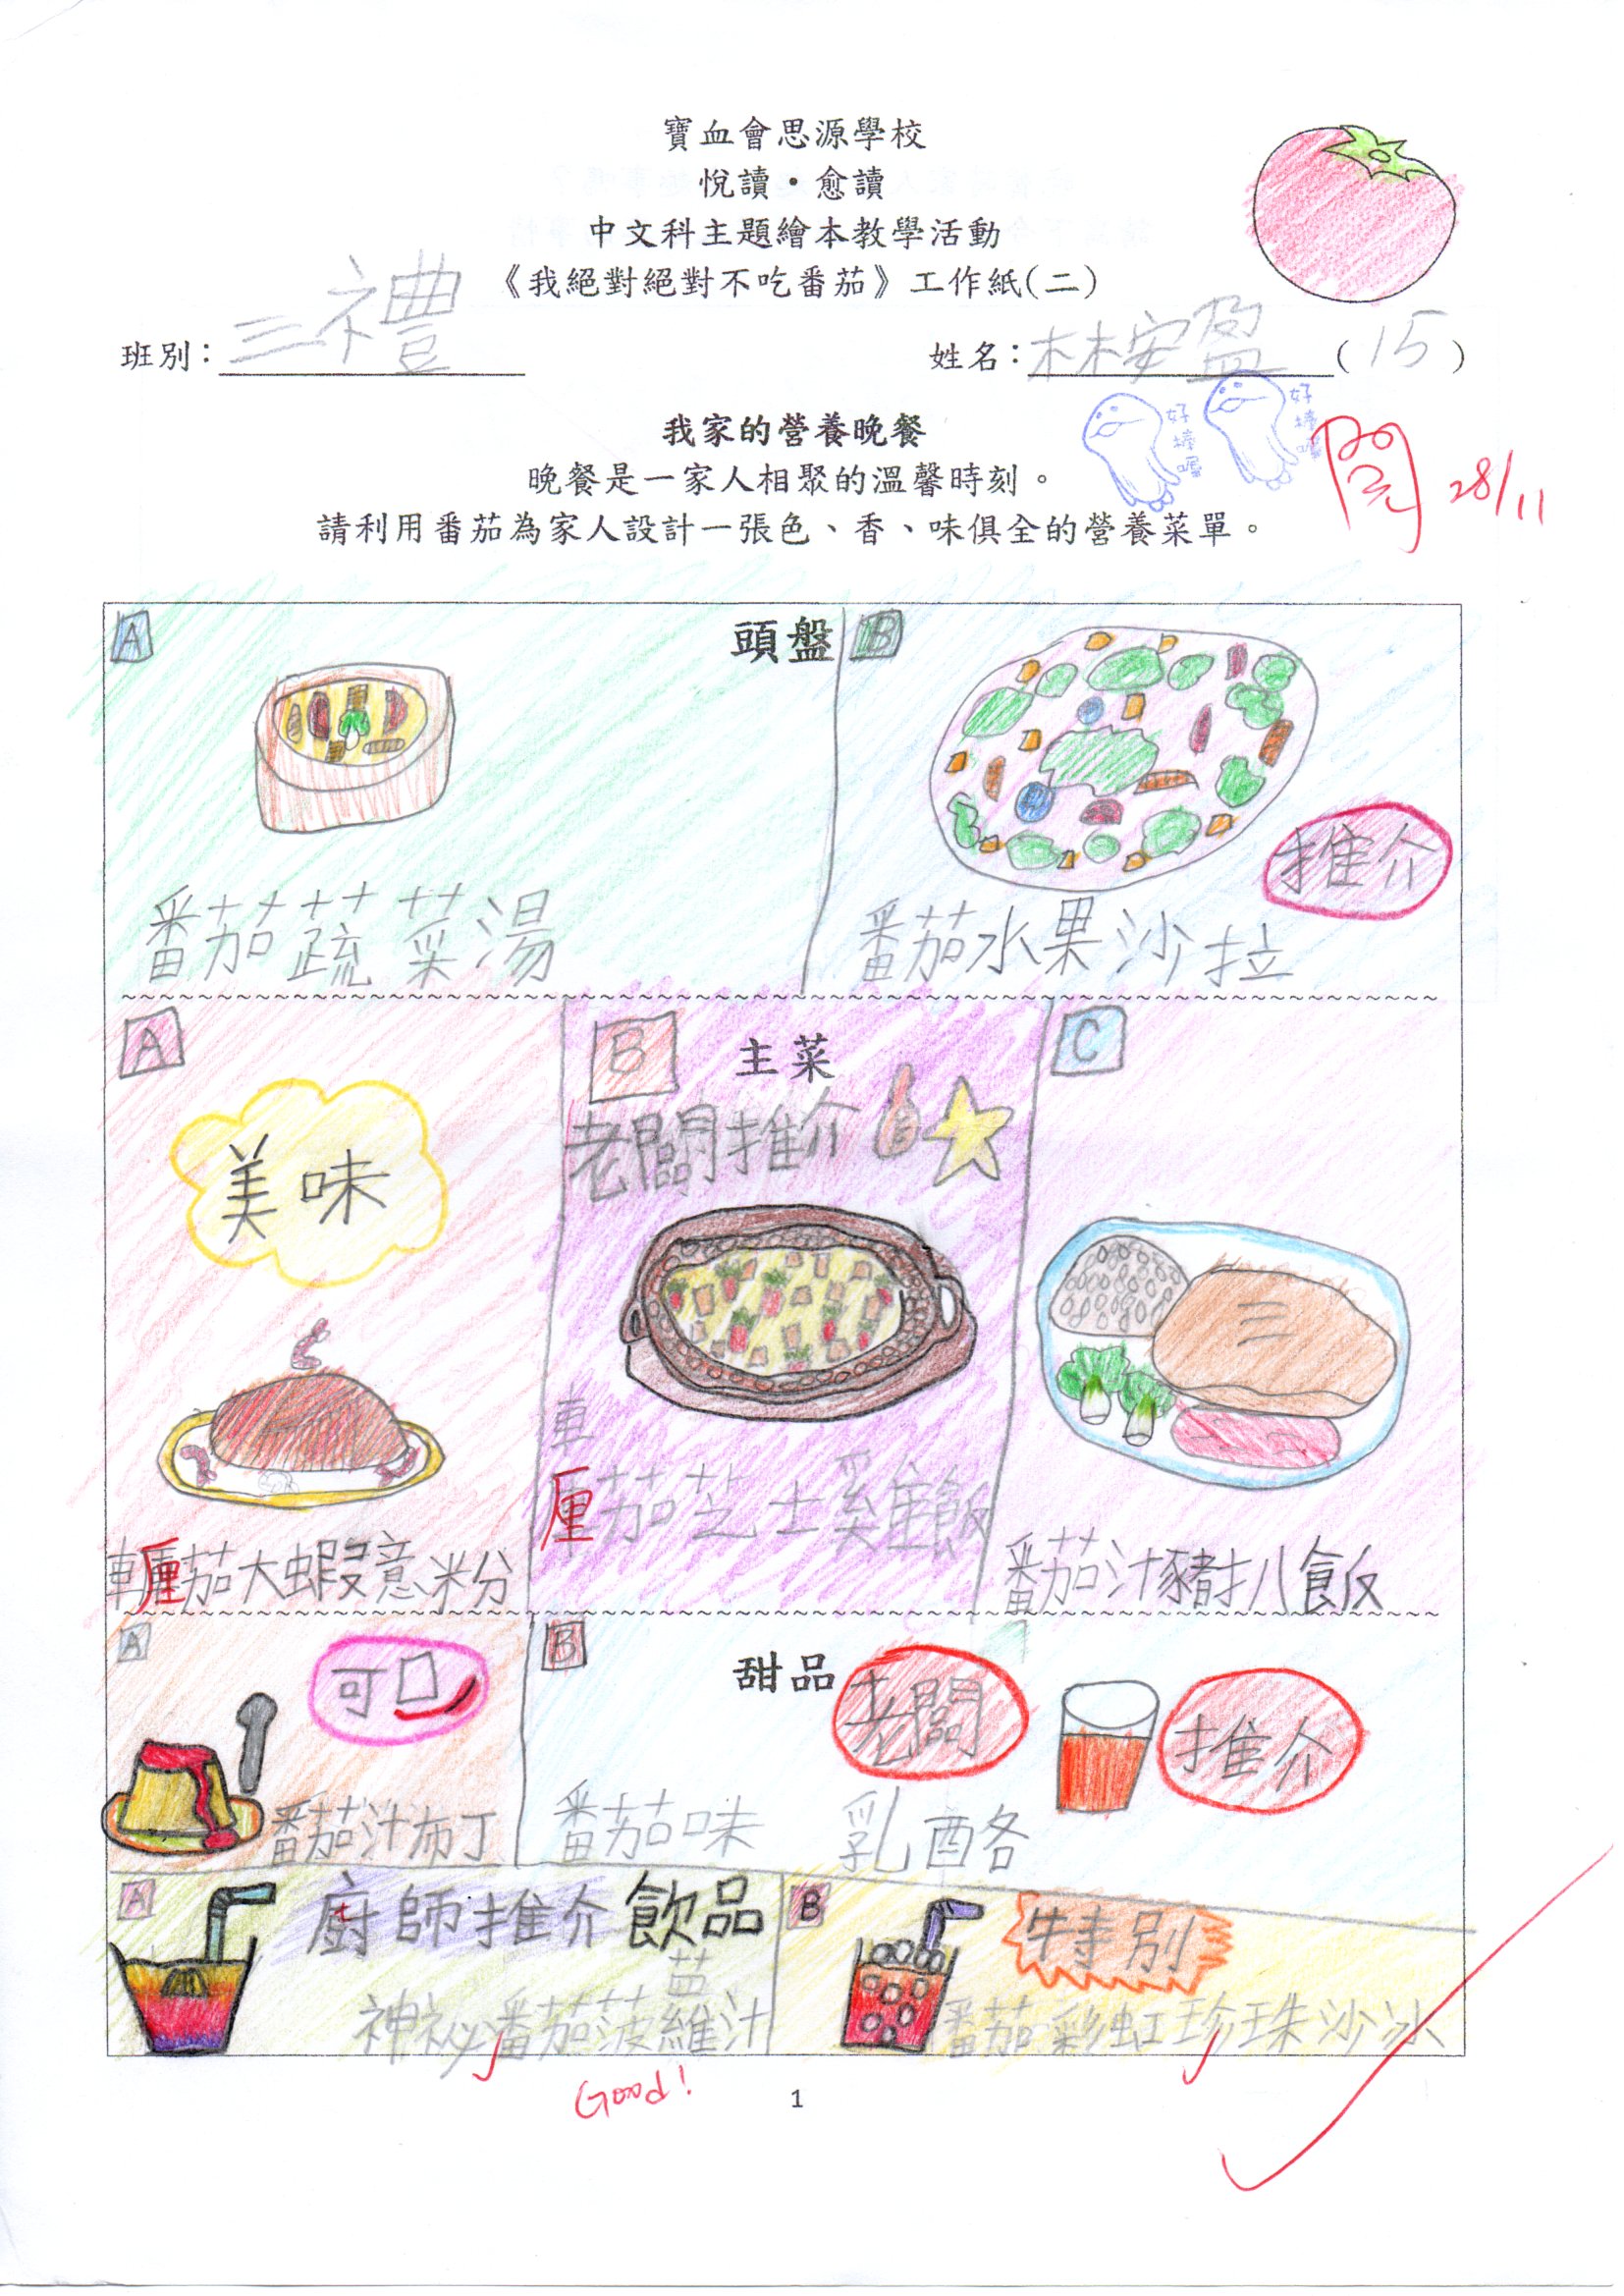 寶血會思源學校
悅讀•愈讀
中文科主題繪本教學活動
《我絕對絕對不吃番茄》工作紙(二)
班別：三禮 姓名：林桉盈(15)
好棒喔 好棒喔
閱 28/11
我家的營養晚餐
晚餐是一家人相聚的溫馨時刻。
請利用番茄為家人設計一張色、香、味俱全的營養菜單。
A 頭盤 B
推介
番茄蔬菜湯 番茄水果沙拉
A B 主菜 C
老闆推介
美味
車
厘茄芝士雞飯
車厘茄大蝦意粉 番茄汁豬扒飯
A 可口 B 甜品 老闆 推介
番茄汁布丁 番茄味 乳酪
A 廚師推介 飲品 B 特別
蘿
神祕番茄菠蘿汁 番茄彩虹珍珠沙冰
Good!
1